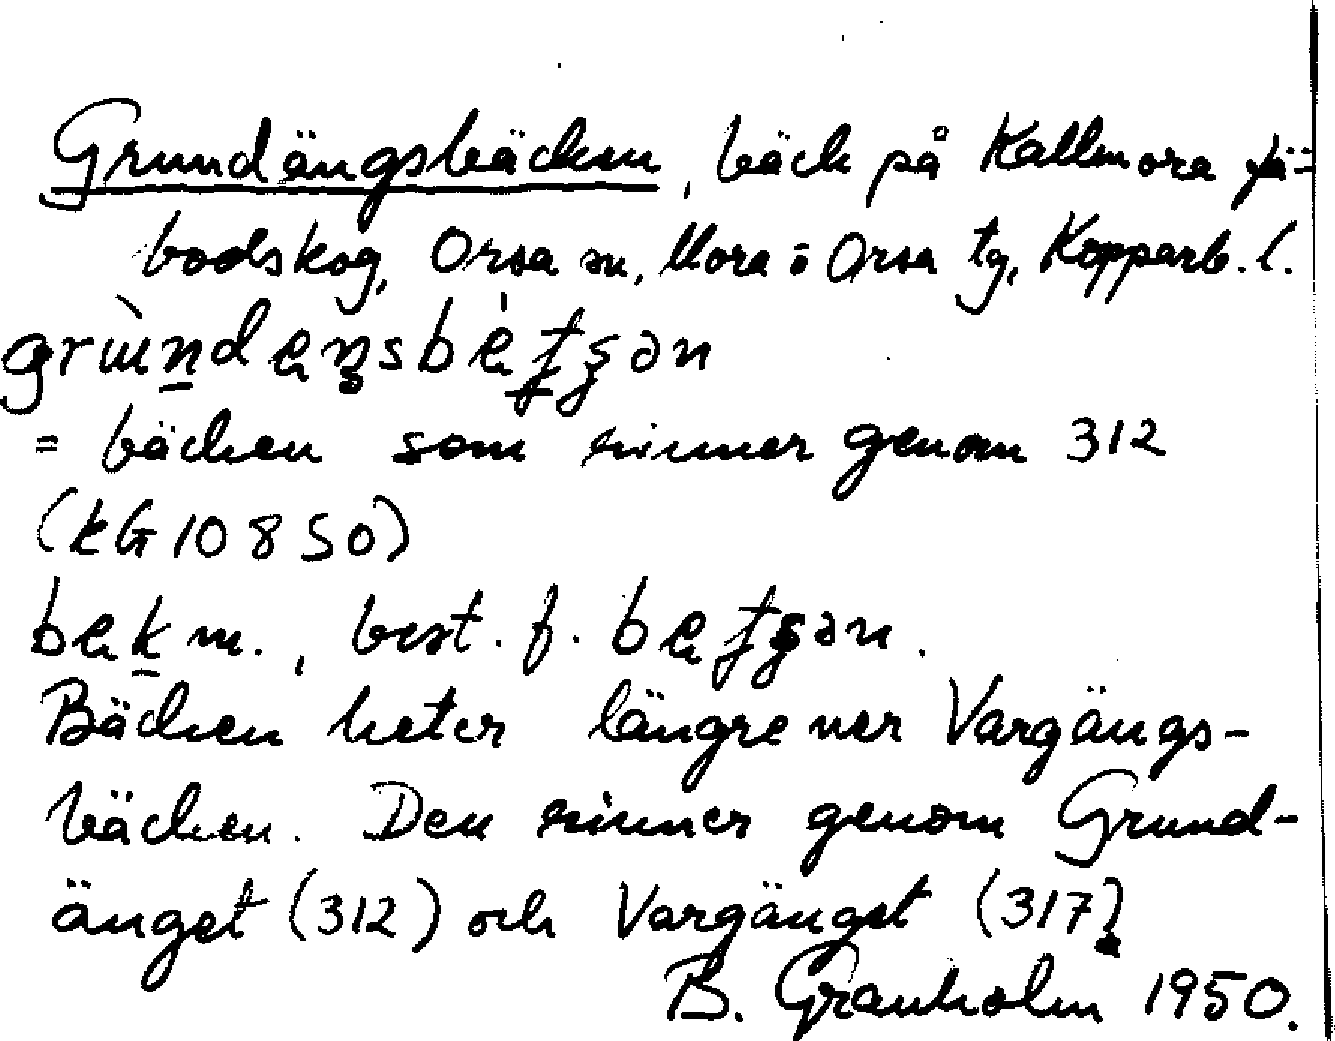 Grundängsbäcken, bäck på Kallmora fä-
bodskog, Orsa sn, Mora o Orsa tg, Kopparb. l.
= bäcken som rinner genom 312
(kG 10850)
m., best. f.
Bäcken heter längre ner Vargängs-
bäcken. Den rinner genom Grund-
änget (312) och Vargänget (317).
B. Granholm 1950.